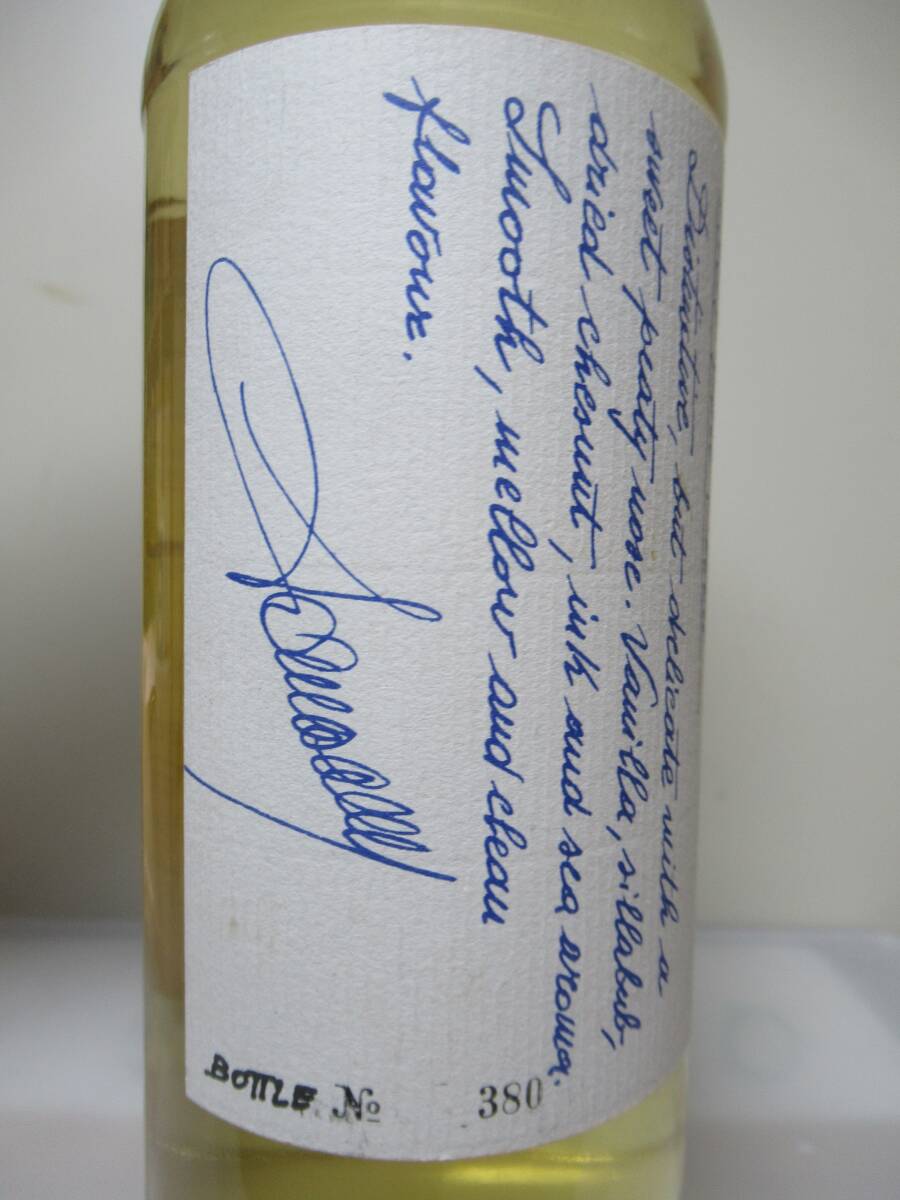 Distinctive, but delicate with a
sweet peaty nose. Vanilla, sillabub,
dried chesnut, ink and sea aroma.
Smooth, mellow and clean
flavour.
BOTTLE No 380